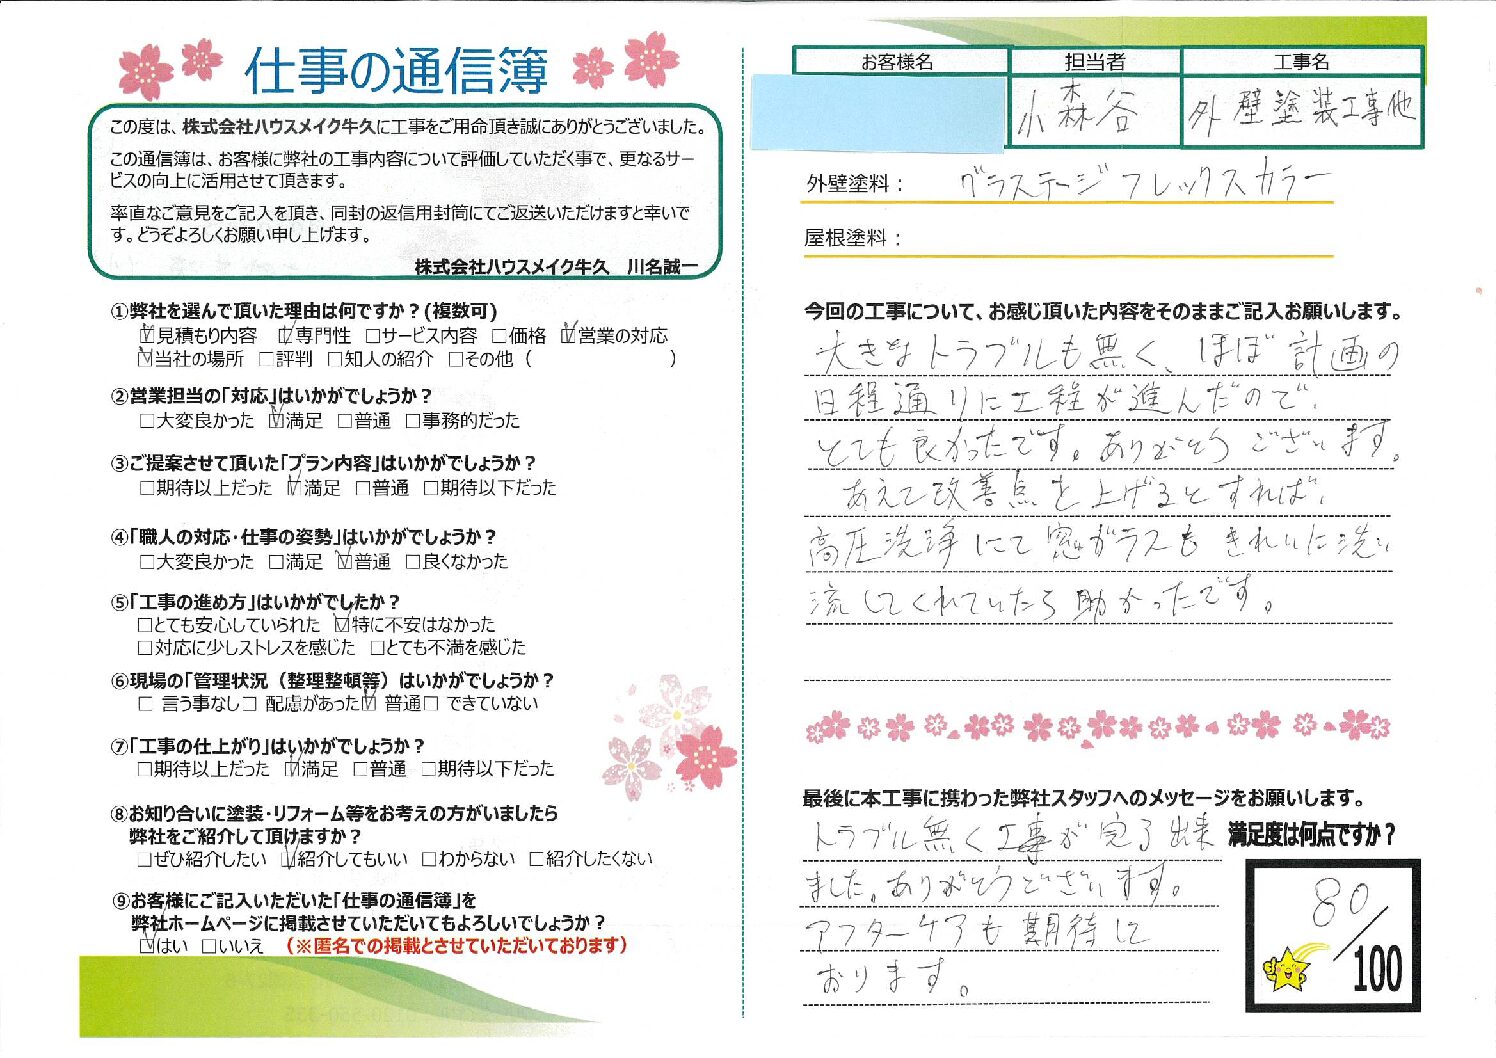 仕事の通信簿
この度は、株式会社ハウスメイク牛久に工事をご用命頂き誠にありがとうございました。
この通信簿は、お客様に弊社の工事内容について評価していただく事で、更なるサー
ビスの向上に活用させて頂きます。
率直なご意見をご記入を頂き、同封の返信用封筒にてご返送いただけますと幸いで
す。どうぞよろしくお願い申し上げます。
株式会社ハウスメイク牛久 川名誠一
①弊社を選んで頂いた理由は何ですか？(複数可)
☑見積もり内容 ☑専門性 □サービス内容 □価格 ☑営業の対応
☑当社の場所 □評判 □知人の紹介 □その他（ ）
②営業担当の「対応」はいかがでしょうか？
□大変良かった ☑満足 □普通 □事務的だった
③ご提案させて頂いた「プラン内容」はいかがでしょうか？
□期待以上だった ☑満足 □普通 □期待以下だった
④「職人の対応・仕事の姿勢」はいかがでしょうか？
□大変良かった □満足 ☑普通 □良くなかった
⑤「工事の進め方」はいかがでしたか？
□とても安心していられた ☑特に不安はなかった
□対応に少しストレスを感じた □とても不満を感じた
⑥現場の「管理状況（整理整頓等）はいかがでしょうか？
□ 言う事なし□ 配慮があった☑ 普通□ できていない
⑦「工事の仕上がり」はいかがでしょうか？
□期待以上だった ☑満足 □普通 □期待以下だった
⑧お知り合いに塗装・リフォーム等をお考えの方がいましたら
弊社をご紹介して頂けますか？
□ぜひ紹介したい ☑紹介してもいい □わからない □紹介したくない
⑨お客様にご記入いただいた「仕事の通信簿」を
弊社ホームページに掲載させていただいてもよろしいでしょうか？
☑はい □いいえ （※匿名での掲載とさせていただいております）
お客様名 担当者 工事名
小森谷 外壁塗装工事他
外壁塗料： グラステージフレックスカラー
屋根塗料：
今回の工事について、お感じ頂いた内容をそのままご記入お願いします。
大きなトラブルも無く、ほぼ計画の
日程通りに工程が進んだので、
とても良かったです。ありがとうございます。
あえて改善点を上げるとすれば、
高圧洗浄にて窓ガラスもきれいに洗い
流してくれていたら助かったです。
最後に本工事に携わった弊社スタッフへのメッセージをお願いします。
トラブル無く工事が完了出来
ました。ありがとうございます。
アフターケアも期待して
おります。
満足度は何点ですか？
80
/100